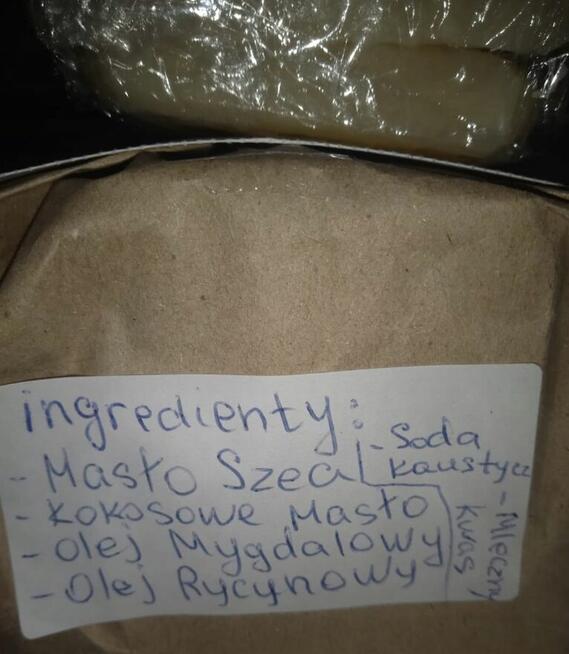 ingredienty:
- Masło Szea
- kokosowe Masło
- olej Mygdalowy
- Olej Rycynowy
- Soda
kaustycz
- Mleczny
kwas